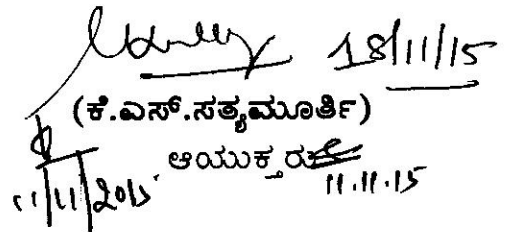 18/11/15
(ಕೆ.ಎಸ್.ಸತ್ಯಮೂರ್ತಿ)
ಆಯುಕ್ತರು
11/11/2015 11.11.15